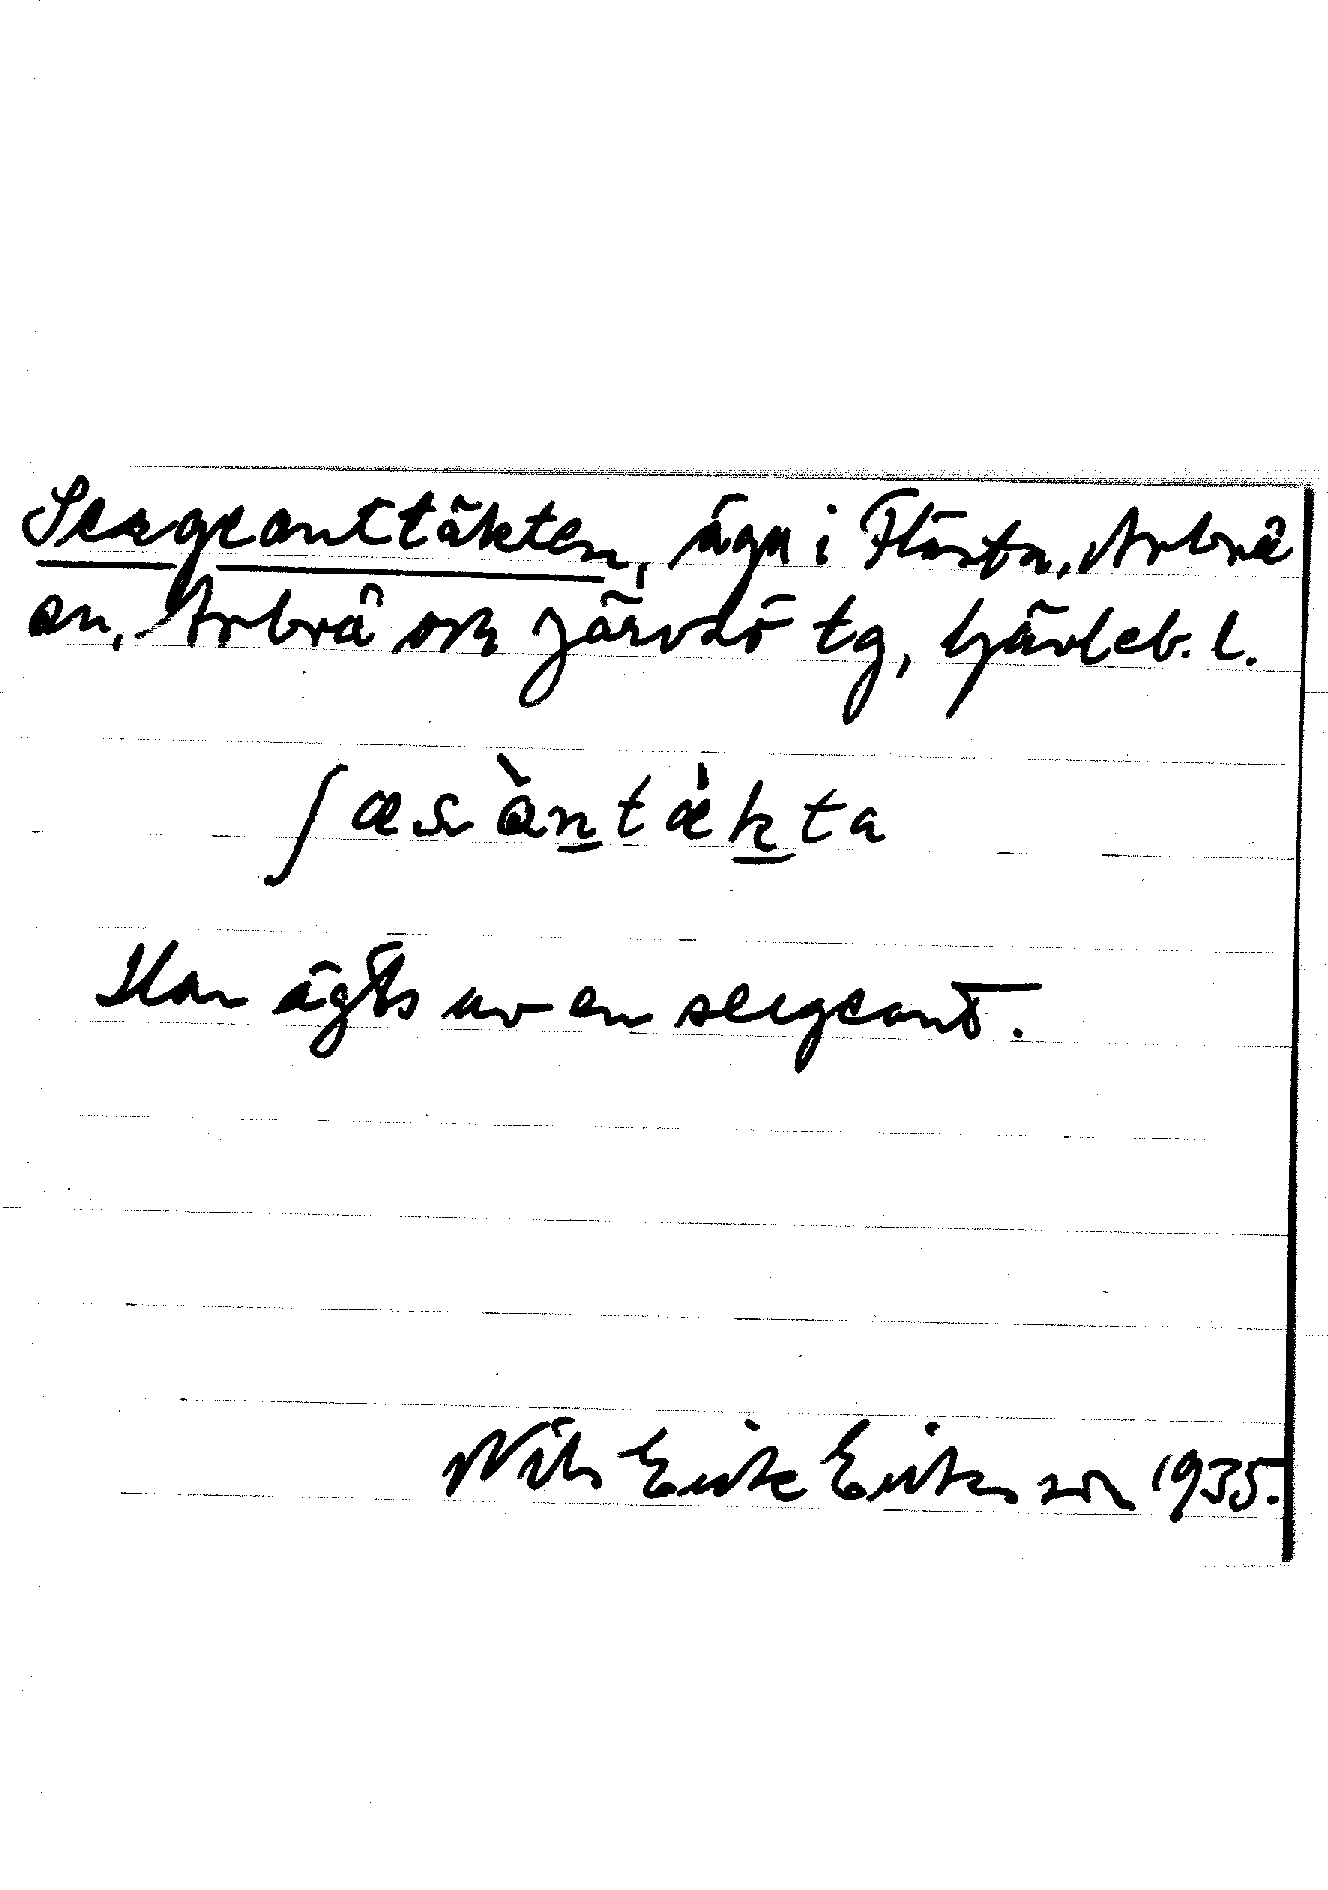 Sergeanttäkten, äga i Flästa, Arbrå
sn, Arbrå och Järvsö tg, Gävleb. l.
ʃæsàntǽkta
Har ägts av en sergeant.
Nils Erik Eriksson 1935.